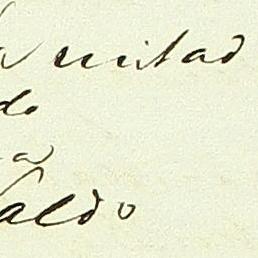 mitad
do
a
aldo